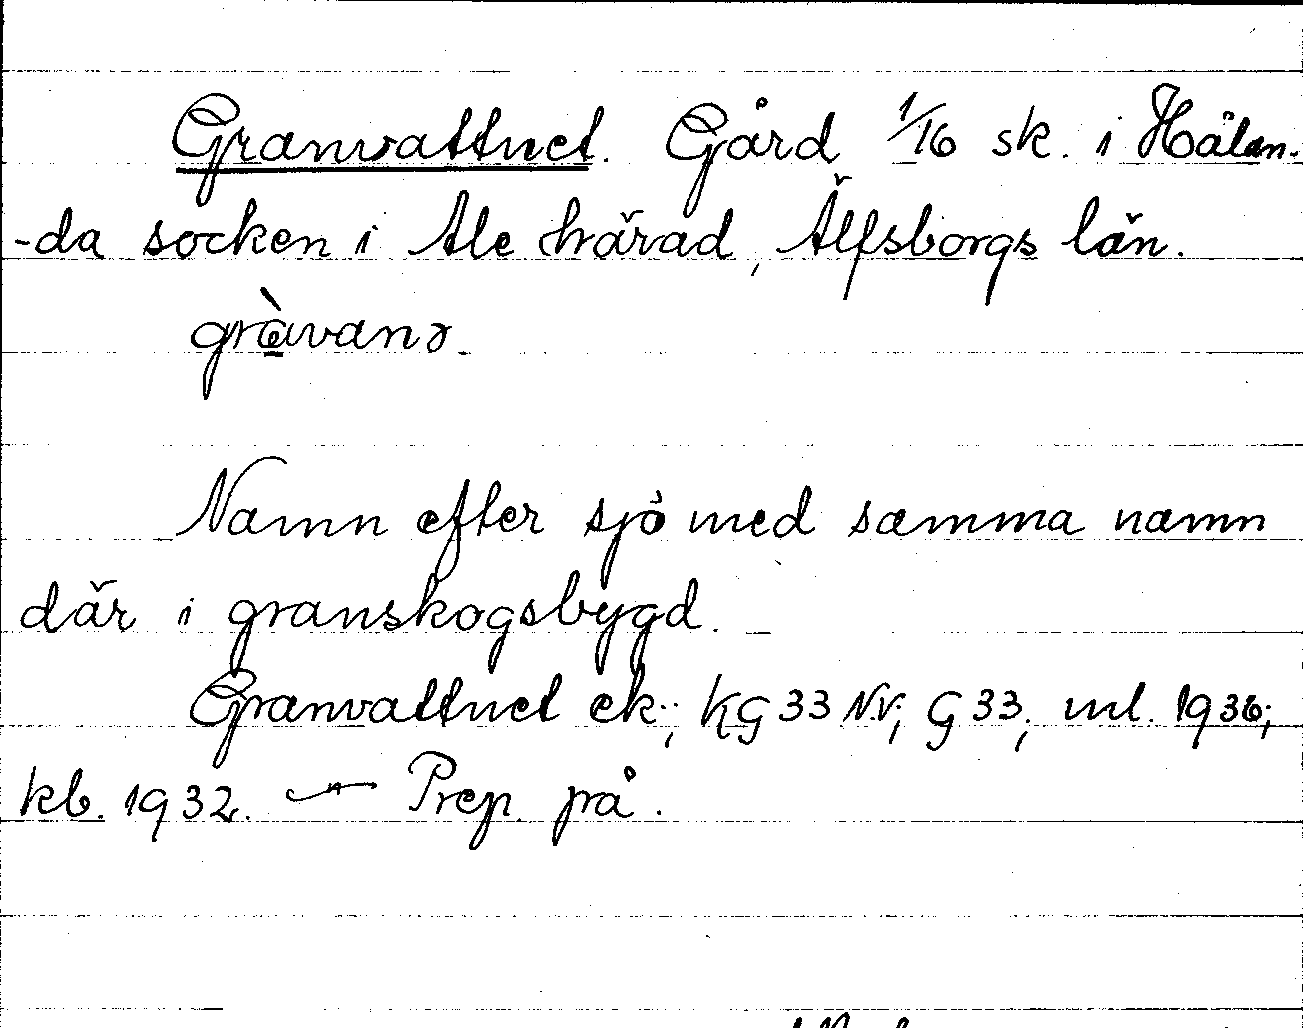 Granvattnet. Gård 1/16 sk. i Hålan-
-da socken i Ale härad, Älfsborgs län.
gràvanə.
Namn efter sjö med samma namn
där i granskogsbygd.
Granvattnet ek.; KG 33 N.V.; G 33; ml. 1936;
kb. 1932. — Prep. på.